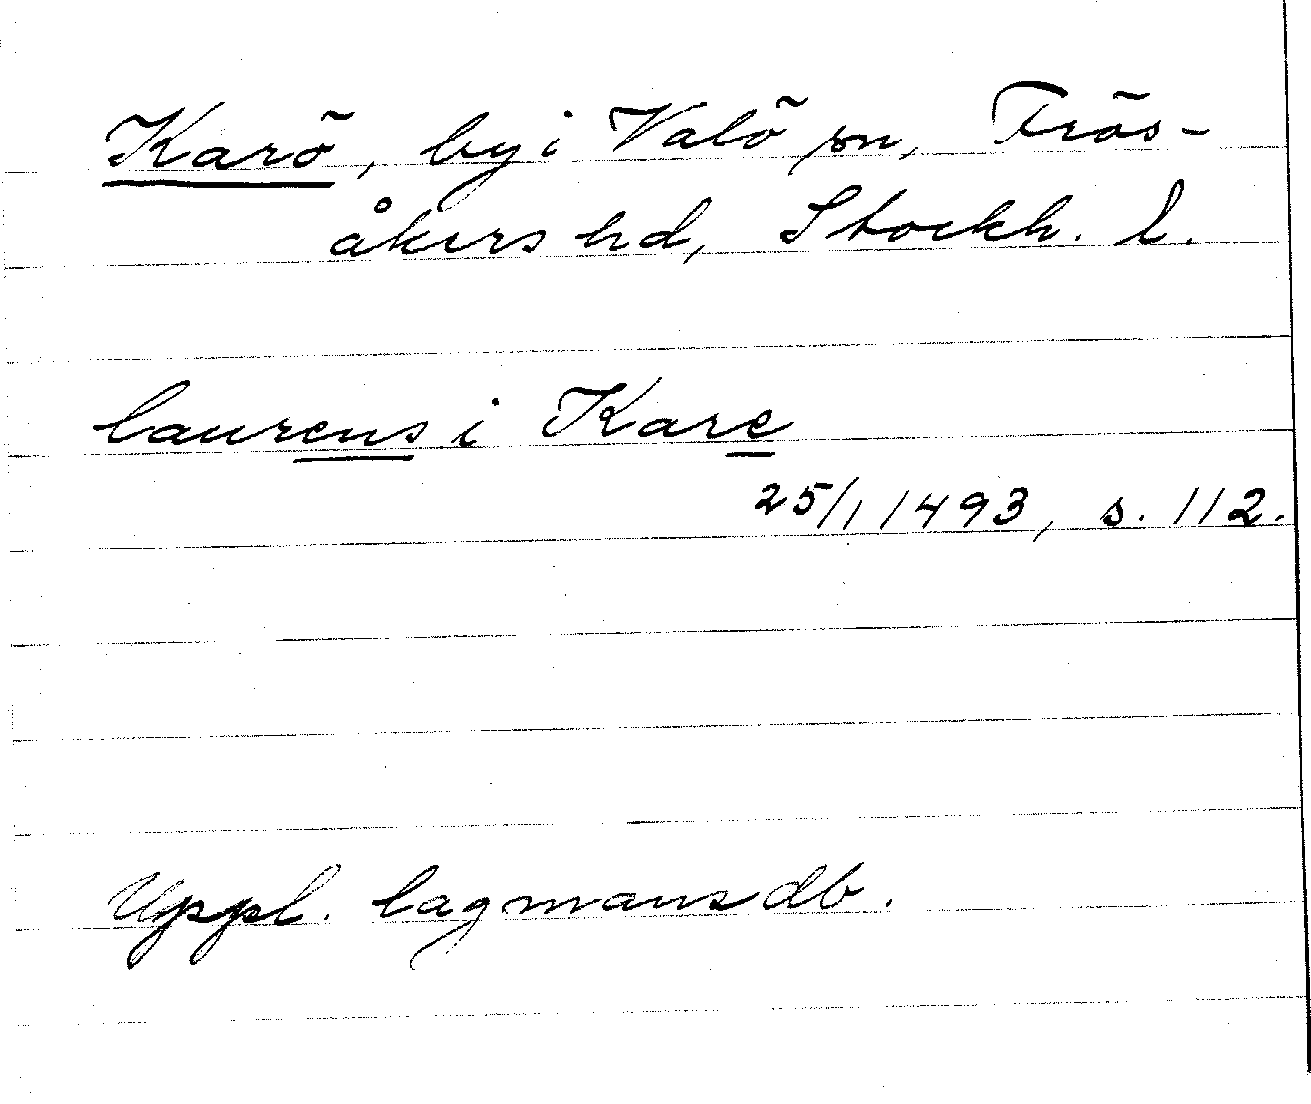 Karö, by i Valö sn, Frös-
åkers hd, Stockh. l.
laurens i Kare
25/1 1493, s. 112.
Uppl. lagmansdb.